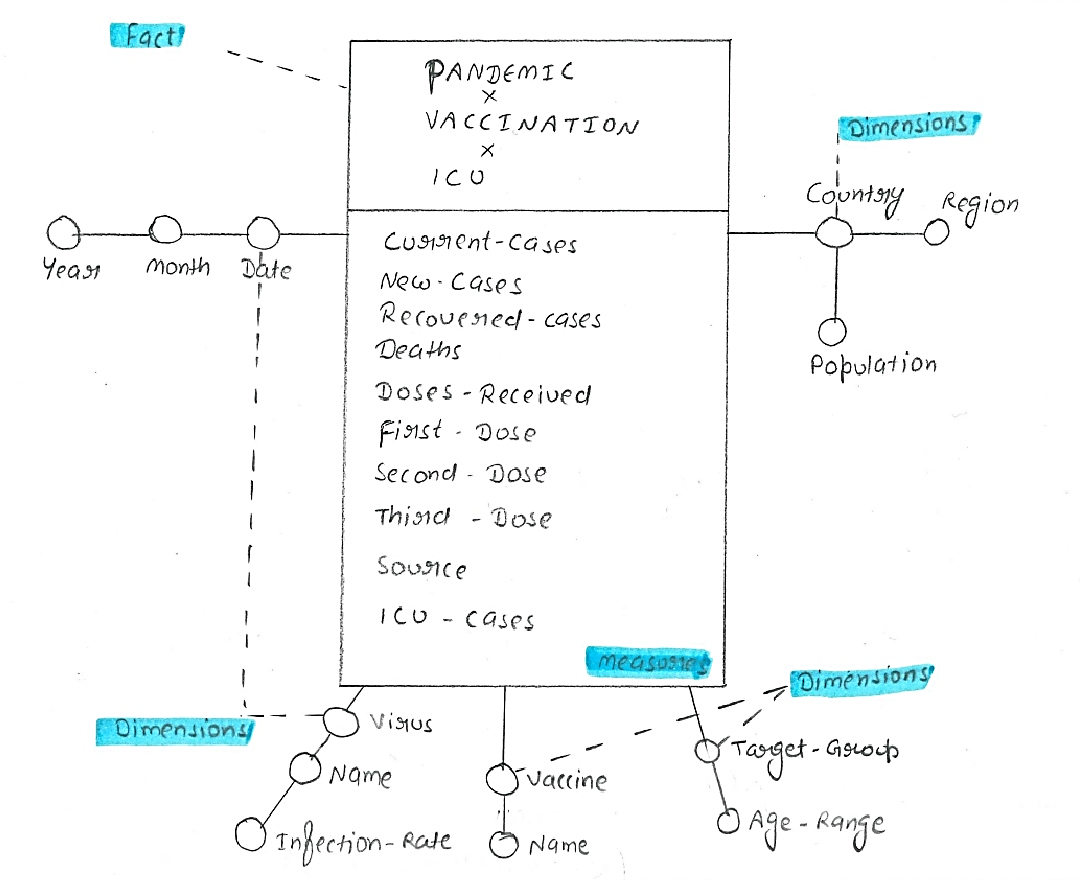 Fact
PANDEMIC
x
VACCINATION
x
ICU
Dimensions
Country
Region
Year
Month
Date
Population
Current-Cases
New-Cases
Recovered-cases
Deaths
Doses-Received
First-Dose
Second-Dose
Third-Dose
Source
ICU-Cases
measures
Dimensions
Dimensions
Virus
Name
Infection-Rate
Vaccine
Name
Target-Group
Age-Range